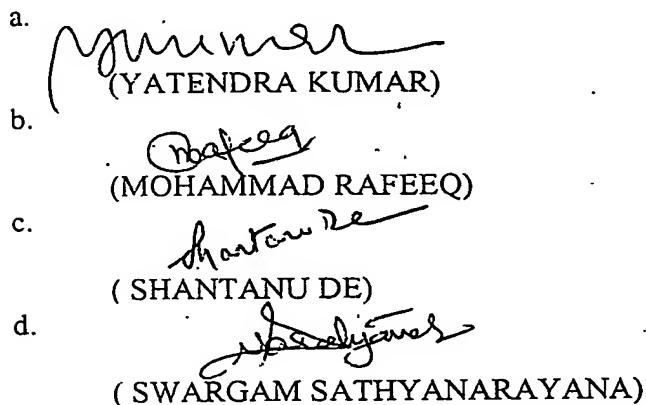 a.
(YATENDRA KUMAR)
b.
(MOHAMMAD RAFEEQ)
c.
Shantanu De
( SHANTANU DE)
d.
( SWARGAM SATHYANARAYANA)